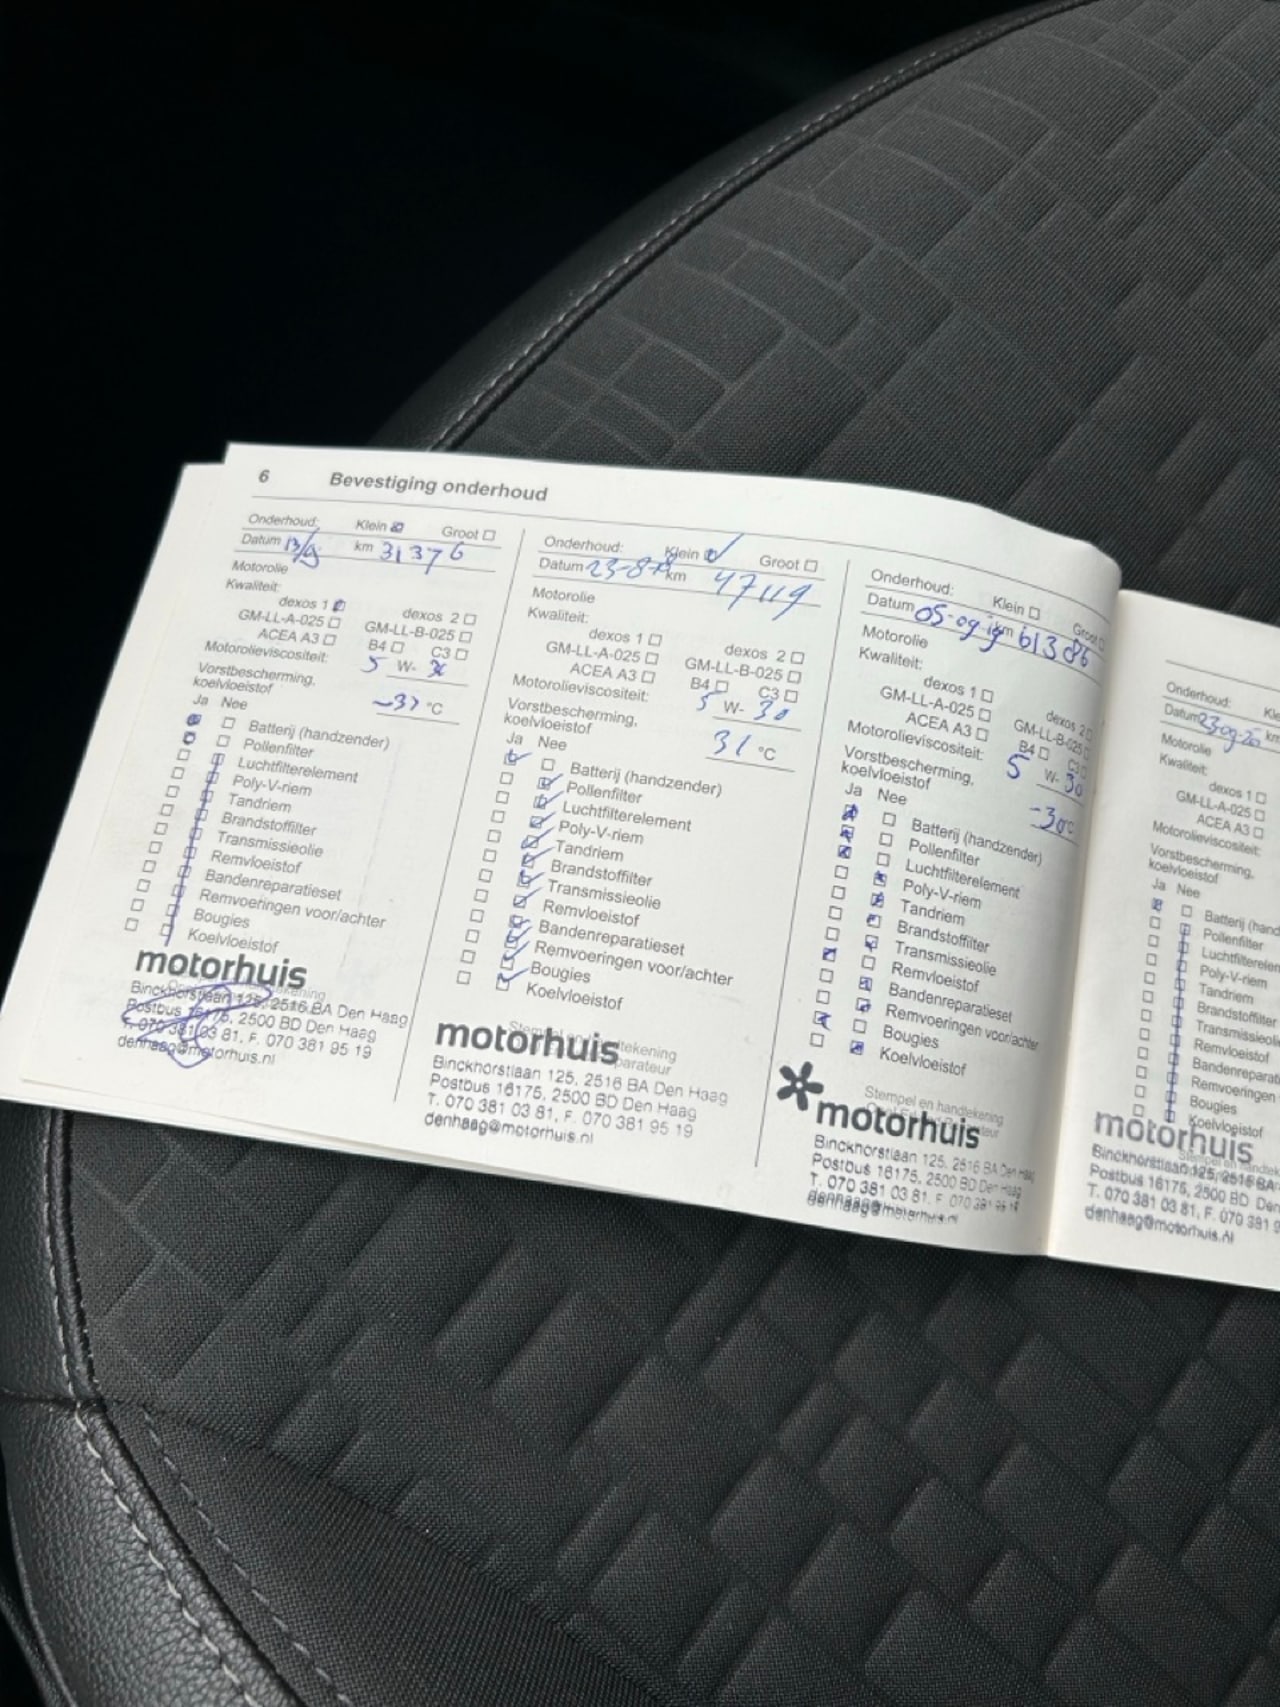 6 Bevestiging onderhoud
Onderhoud: Klein Groot
Datum km 31376
Motorolie
Kwaliteit:
dexos 1 dexos 2
GM-LL-A-025 GM-LL-B-025
ACEA A3 B4 C3
Motorolieviscositeit: 5 W- 30
Vorstbescherming,
koelvloeistof °C
Ja Nee
Batterij (handzender)
Pollenfilter
Luchtfilterelement
Poly-V-riem
Tandriem
Brandstoffilter
Transmissieolie
Remvloeistof
Bandenreparatieset
Remvoeringen voor/achter
Bougies
Koelvloeistof
motorhuis
Binckhorstlaan 125, 2516 BA Den Haag
Postbus 16175, 2500 BD Den Haag
T. 070 381 03 81, F. 070 381 95 19
denhaag@motorhuis.nl
Onderhoud: Klein Groot
Datum 23-8-18 km 47119
Motorolie
Kwaliteit:
dexos 1 dexos 2
GM-LL-A-025 GM-LL-B-025
ACEA A3 B4 C3
Motorolieviscositeit: 5 W- 30
Vorstbescherming,
koelvloeistof 31 °C
Ja Nee
Batterij (handzender)
Pollenfilter
Luchtfilterelement
Poly-V-riem
Tandriem
Brandstoffilter
Transmissieolie
Remvloeistof
Bandenreparatieset
Remvoeringen voor/achter
Bougies
Koelvloeistof
Stempel en handtekening
motorhuis
Binckhorstlaan 125, 2516 BA Den Haag
Postbus 16175, 2500 BD Den Haag
T. 070 381 03 81, F. 070 381 95 19
denhaag@motorhuis.nl
Onderhoud: Klein Groot
Datum 05-09-19 km 61386
Motorolie
Kwaliteit:
dexos 1 dexos 2
GM-LL-A-025 GM-LL-B-025
ACEA A3 B4 C3
Motorolieviscositeit: 5 W- 30
Vorstbescherming,
koelvloeistof -30 °C
Ja Nee
Batterij (handzender)
Pollenfilter
Luchtfilterelement
Poly-V-riem
Tandriem
Brandstoffilter
Transmissieolie
Remvloeistof
Bandenreparatieset
Remvoeringen voor/achter
Bougies
Koelvloeistof
Stempel en handtekening
motorhuis
Binckhorstlaan 125, 2516 BA Den Haag
Postbus 16175, 2500 BD Den Haag
T. 070 381 03 81, F. 070 381 95 19
denhaag@motorhuis.nl
Onderhoud: Kl
Datum 23-09-20 km
Motorolie
Kwaliteit:
dexos 1
GM-LL-A-025
ACEA A3
Motorolieviscositeit:
Vorstbescherming,
koelvloeistof
Ja Nee
Batterij (hand
Pollenfilter
Luchtfilterelem
Poly-V-riem
Tandriem
Brandstoffilter
Transmissieolie
Remvloeistof
Bandenreparat
Remvoeringen
Bougies
Koelvloeistof
motorhuis
Binckhorstlaan 125, 2516 BA
Postbus 16175, 2500 BD Den
T. 070 381 03 81, F. 070 381 9
denhaag@motorhuis.nl